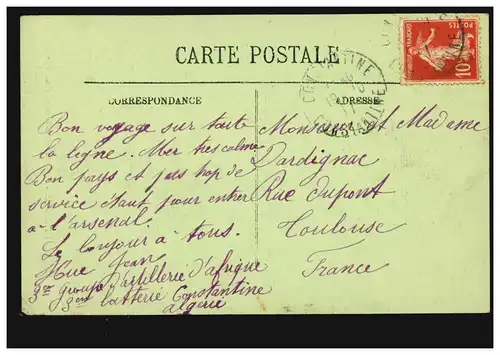 CARTE POSTALE
CORRESPONDANCE
ADRESSE
CONSTANTINE
CONSTANTINE
10
Bon voyage sur toute
la ligne. Mer tres calme
Bon pays et pas trop de
service étant pour entrer
à l'arsenal.
Le bonjour à tous.
Jean
3me groupe d'artillerie d'afrique
3me batterie Constantine
algérie
Monsieur et Madame
Dardignac
Rue Dupont
Toulouse
France